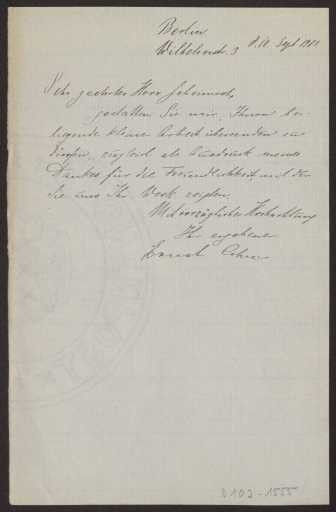 Berlin
Wilhelmstr. 3 d. 10. Sept 1911
Sehr geehrter Herr Geheimrat,
gestatten Sie mir, Ihnen bei-
liegende kleine Arbeit übersenden zu
dürfen, zugleich als Ausdruck meines
Dankes für die Freundlichkeit mit der
Sie uns Ihr Werk zeigten.
Mit vorzüglicher Hochachtung
Ihr ergebener
D 103-1555